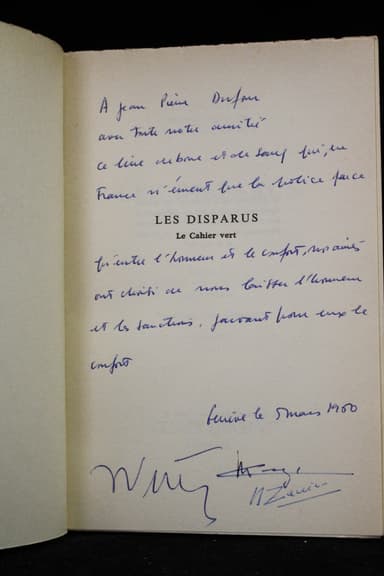 A Jean Pierre Dufour
avec toute notre amitié
ce livre de boue et de sang qui, en
France n'émeut que la police parce
LES DISPARUS
Le Cahier vert
qu'entre l'honneur et le confort, nos aînés
ont choisi de nous laisser l'honneur
et les sanctions, gardant pour eux le
confort
Genève le 5 mars 1960